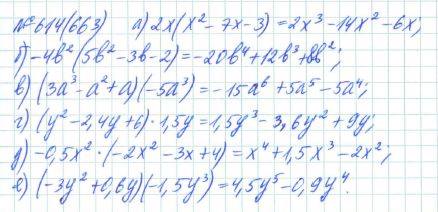 №614(663) а) 2x(x² - 7x - 3) = 2x³ - 14x² - 6x;
б) -4b²(5b² - 3b - 2) = -20b⁴ + 12b³ + 8b²;
в) (3a³ - a² + a)(-5a³) = -15a⁶ + 5a⁵ - 5a⁴;
г) (y² - 2,4y + 6) · 1,5y = 1,5y³ - 3,6y² + 9y;
д) -0,5x² · (-2x² - 3x + 4) = x⁴ + 1,5x³ - 2x²;
е) (-3y² + 0,6y)(-1,5y³) = 4,5y⁵ - 0,9y⁴.